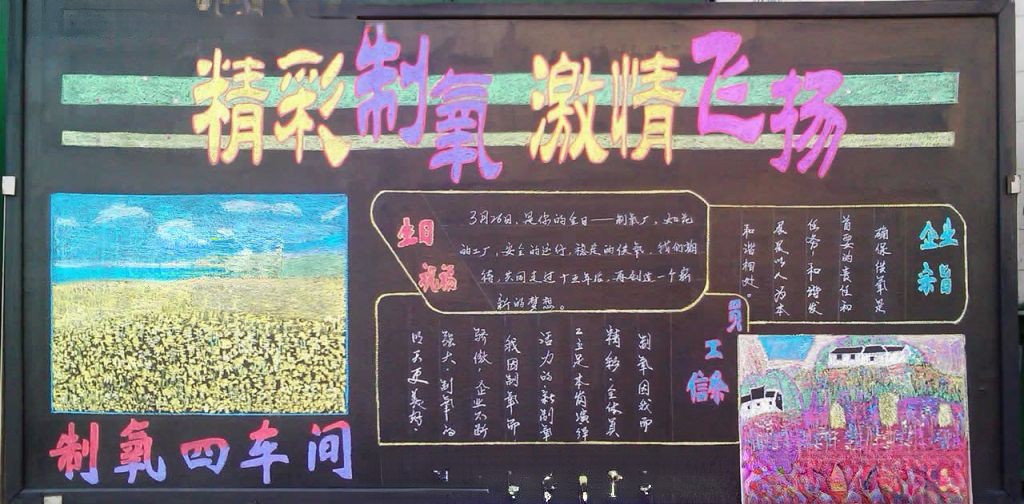 精彩制氧 激情飞扬
生日
祝福
3月28日，是你的生日——制氧厂，如花
的工厂，安全的运行，稳定的供氧，我们期
待，共同走过十五年后，再创造一个新
新的梦想。
企业
宗旨
确保供氧是
首要的责任和
任务，和谐发
展是以人为本
和谐相处。
员
工
信条
制氧因我而
精彩，全体员
工立足本岗演绎
活力的新制氧
我因制氧而
骄傲，企业不断
强大，制氧的
明天更美好！
制氧四车间